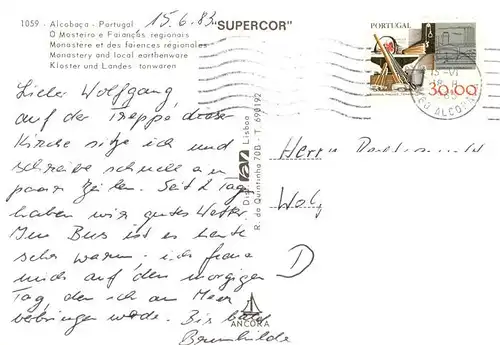 1059 - Alcobaça - Portugal
15.6.83
"SUPERCOR"
O Mosteiro e Faianças regionais
Monastere et des faiences régionales
Monastery and local earthenware
Kloster und Landes tonwaren
PORTUGAL
30.00
Lieber Wolfgang,
auf der Treppe dieser
Kirche sitze ich und
schreibe schnell ein
paar Zeilen. Seit 2 Tagen
haben wir gutes Wetter.
Im Bus ist es heute
sehr warm. ich freue
mich auf den morgigen
Tag, den ich am Meer
verbringen werde. Bis bald
Brunhilde
Herrn
Wolf
D
Dist. Lisboa
R. do Quintinha 70B - T. 690192
ANCORA